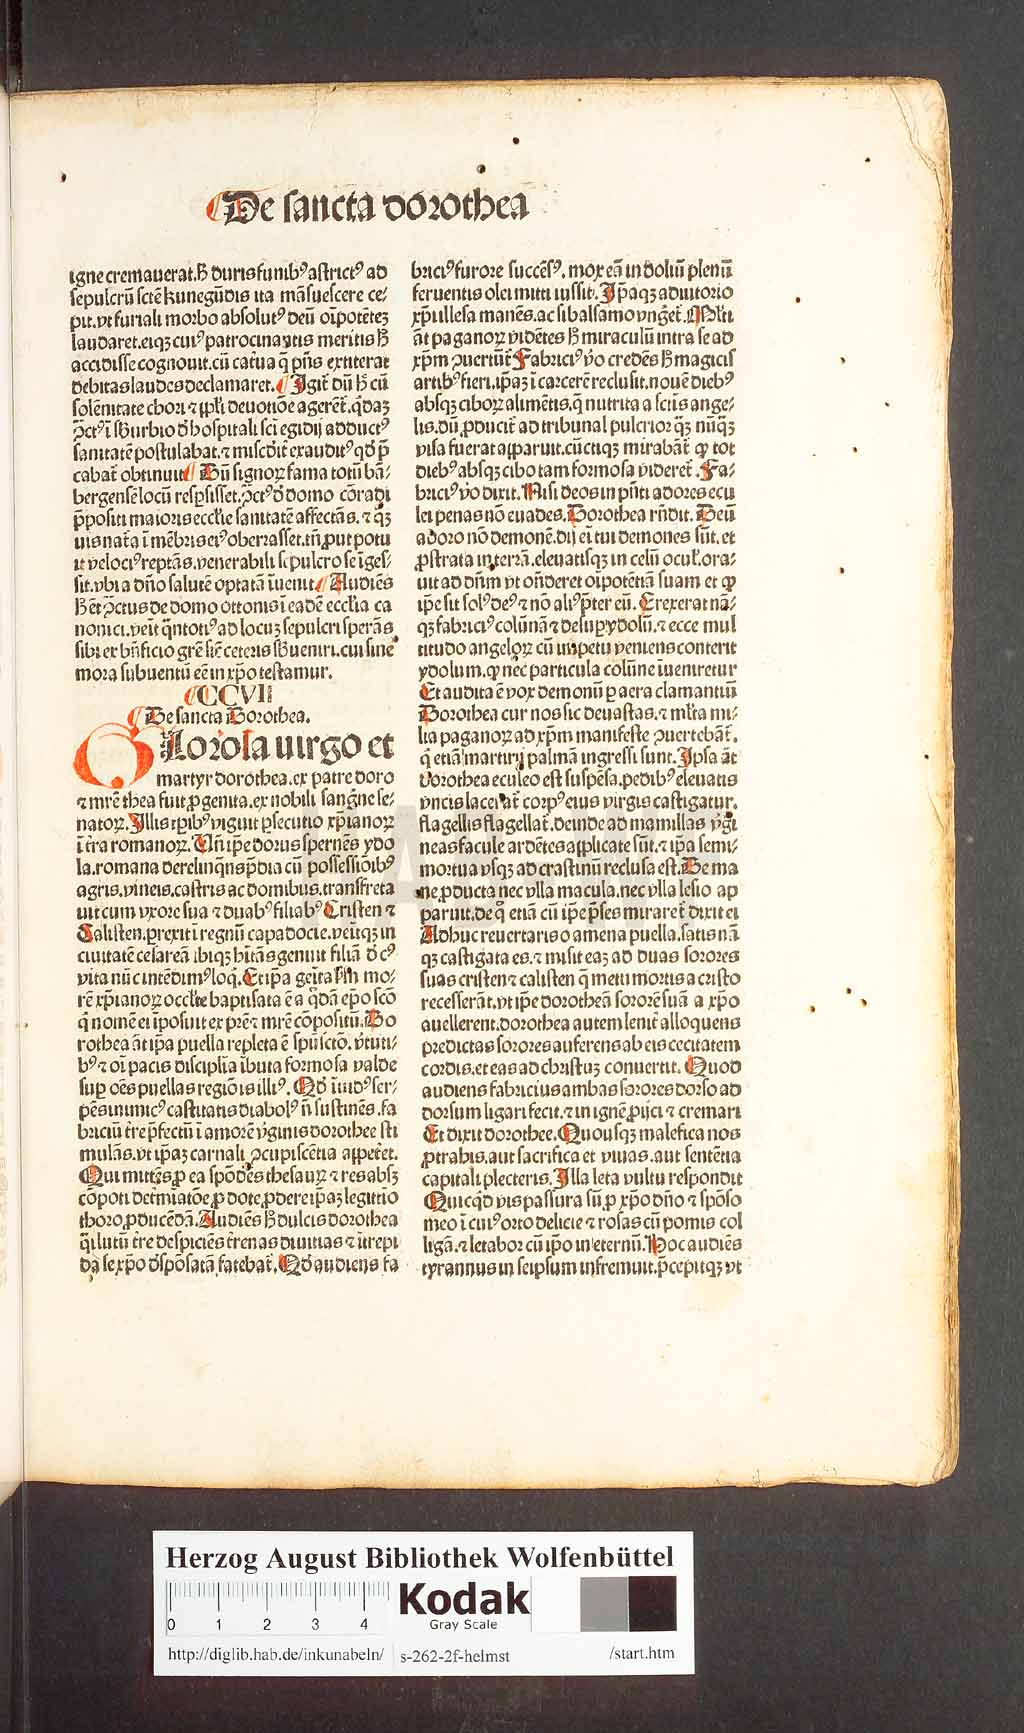 De sancta dorothea
igne cremauerat. h̄ duris funibꝰ astrictꝰ ad
sepulcrū sctē kunegūdis ita māsuescere ce⸗
pit. vt furiali morbo absolutꝰ deū oīpotētez
laudaret. eiqꝫ cuiꝰ patrocinātis meritis h̄
accidisse cognouit. cū caťua q̄ p̄ns extiterat
debitas laudes declamaret. Igiť dū h̄ cū
solēnitate chori ⁊ ppl̓i deuotiōe agereť. q̄daꝫ
ꝯctꝰ ī sburbio d̓ hospitali sci egidij adductꝰ
sanitatē postulabat. ⁊ misc̄dit̓ exauditꝰ qd̓ p̄
cabať obtinuit Dū signoꝝ fama totū bā⸗
bergensē locū resꝑsisset. ꝯctꝰ d̓ domo cōradi
p̄positi maioris eccl̓ie sanitatē affectās. ⁊ qꝫ
uis naťa ī mēbris eiꝰ oberrasset. tn̄ ꝓut potu
it velociꝰ reptās. venerabili sepulcro se īges⸗
sit. vbi a dn̄o salutē optatā īuenit. Audiēs
h̄ eť ꝯctus de domo ottonis ī eadē eccl̓ia ca
nonici. veīt q̄ntotiꝰ ad locuꝫ sepulcri sperās
sibi ex bn̄ficio grē sic̄ ceteris sbueniri. cui sine
mora subuentū eē in xp̄o testamur.
CCVII
De sancta Dorothea.
Glorosa uirgo et
martyr dorothea. ex patre doro
⁊ mrē thea fuit ꝓgenita. ex nobili sang̓ne se⸗
natoꝝ. Illis tꝑibꝰ viguit ꝑsecutio xp̄ianoꝝ
ī ťra romanoꝝ. Vn̄ ip̄e dorus spernēs ydo
la. romana derelinq̄ns p̄dia cū possessioībꝰ
agris. vineis. castris ac domibus. transfreta
uit cum vxore sua ⁊ duabꝰ filiabꝰ Cristen ⁊
Calisten. ꝑrexit ī regnū capadocie. veīitqꝫ in
ciuitatē cesareā ibiqꝫ hītās genuit filiā d̓ cꝰ
vita nūc intēdimꝰ loq̓. Et ip̄a geīta sm̄ mo⸗
rē xp̄ianoꝝ occl̓te baptisata ē a q̄dā ep̄o scō
q̓ nomē ei īposuit ex prē ⁊ mrē cōpositū. Do
rothea āt ip̄a puella repleta ē spūsctō. v̓tuti⸗
bꝰ ⁊ oī pacis disciplīa ībuta formosa valde
suꝑ oēs puellas regiōis illiꝰ. Qd̓ īuidꝰ ser⸗
pēs inimicꝰ castitatis diabolꝰ n̄ sustinēs. fa
briciū ťre p̄fectū ī amorē v̓ginis dorothee sti
mulās. vt ip̄aꝫ carnali ꝯcupiscētia appeťet.
Qui mittēs ꝓ ea spōdēs thesauꝝ ⁊ res absꝫ
cōpoti deťmīatōe ꝓ dote. ꝓdere ip̄aꝫ legittīo
thoro. ꝓducēdā. Audiēs h̄ dulcis dorothea
q̄si lutū ťre despiciēs ťrenas diuitias ⁊ ītrepi
da se xp̄o d̓sponsatā fatebať. Qd̓ audiens fa
briciꝰ furore succēsꝰ. mox eā in doliū plenū
feruentis olei mitti iussit. Ip̄aqꝫ adiutorio
xp̄i illesa manēs. ac si balsamo vngeť. Ml̓ti
āt paganoꝝ vidētes h̄ miraculū intra se ad
xp̄m ꝯuertūť Fabriciꝰ v̓o credēs h̄ magicis
artibꝰ fieri. ip̄aꝫ ī carcerē reclusit. nouē diebꝰ
absqꝫ ciboꝝ alimētis. q̄ nutrita a sctīs ange⸗
lis. dū ꝓduciť ad tribunal pulcrior qꝫ nūqꝫ
visa fuerat apparuit. cūctiqꝫ mirabāť ꝙ tot
diebꝰ absqꝫ cibo tam formosa videreť. Fa⸗
briciꝰ v̓o dixit. Nisi deos in pn̄ti adores ecu
lei penas nō euades. Dorothea rn̄dit. Deū
adoro nō demonē. dij ei tui demones sūt. et
ꝓstrata in terrā. eleuatisqꝫ in celū ocul̓. ora⸗
uit ad dn̄m vt on̄deret oīpotētiā suam et ꝙ
ip̄e sit solꝰ deꝰ ⁊ nō aliꝰ p̄ter eū. Erexerat nā⸗
qꝫ fabriciꝰ colūnā ⁊ desuꝑ ydolū. ⁊ ecce mul
titudo angeloꝝ cū impetu veniens conterit
ydolum. ꝙ nec particula colūne īueniretur
Et audita ē vox demonū ꝑ aera clamantiū
Dorothea cur nos sic deuastas. ⁊ ml̓ta mi⸗
lia paganoꝝ ad xp̄m manifeste ꝯuertebāť.
q̓ etiā martirij palmā ingressi sunt. Ipsa āt
dorothea eculeo est suspēsa. pedibꝰ eleuatis
vncis lacerať corpꝰ eius virgis castigatur.
flagellis flagellať. deinde ad mamillas v̓gi
neas facule ardētes applicate sūt. ⁊ ip̄a semi⸗
mortua vsqꝫ ad crastinū reclusa est. De ma
ne ꝓducta nec vlla macula. nec vlla lesio ap
paruit. de q̊ etiā cū ip̄e p̄ses mirareť dixit ei
Adhuc reuertaris o amena puella. satis nā
qꝫ castigata es. ⁊ misit eaꝫ ad duas sorores
suas cristen ⁊ calisten q̄ metu mortis a cristo
recesserāt. vt ip̄e dorotheā sororē suā a xp̄o
auellerent. dorothea autem leniť alloquens
predictas sorores auferens ab eis cecitatem
cordis. et eas ad christuꝫ conuertit. Quod
audiens fabricius ambas sorores dorso ad
dorsum ligari fecit. ⁊ in ignē ꝓijci ⁊ cremari
Et dixit dorothee. Quousqꝫ malefica nos
ꝓtrahis. aut sacrifica et viuas. aut sentētia
capitali plecteris. Illa leta vultu respondit
Quicqd̓ vis passura sū. ꝓ xp̄o dn̄o ⁊ spōso
meo ī cuiꝰ orto delicie ⁊ rosas cū pomis col
ligā. ⁊ letabor cū ip̄o in eternū. Hoc audiēs
tyrannus in seipsum infremuit. p̄cepitqꝫ vt
Herzog August Bibliothek Wolfenbüttel
0 1 2 3 4
Kodak
Gray Scale
http://diglib.hab.de/inkunabeln/ s-262-2f-helmst /start.htm